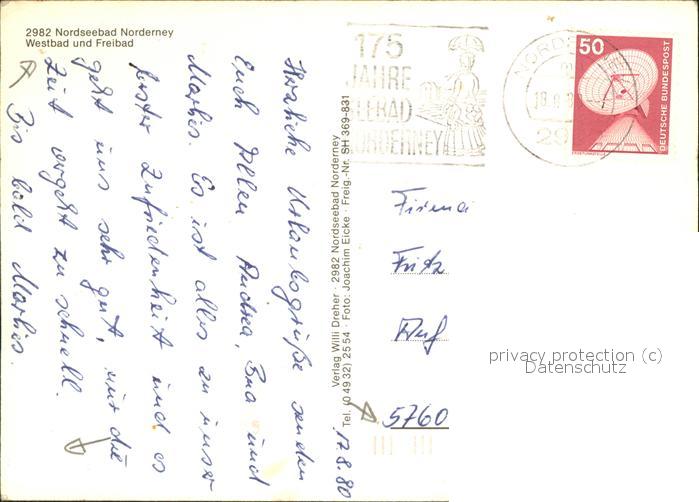 2982 Nordseebad Norderney
Westbad und Freibad
Herzliche Urlaubsgrüße senden
Euch Allen Andrea, und
Marlies. Es ist alles zu unser
bester Zufriedenheit und es
geht uns sehr gut, nur die
Zeit vergeht zu schnell.
Bis bald Marlies.
17.8.80
Verlag Willi Dreher · 2982 Nordseebad Norderney
Tel. (0 49 32) 25 54 · Foto: Joachim Eicke · Freig.-Nr. SH 369-831
175
JAHRE
SEEBAD
NORDERNEY
50
DEUTSCHE BUNDESPOST
Firma
Fritz
5760
privacy protection (c)
Datenschutz